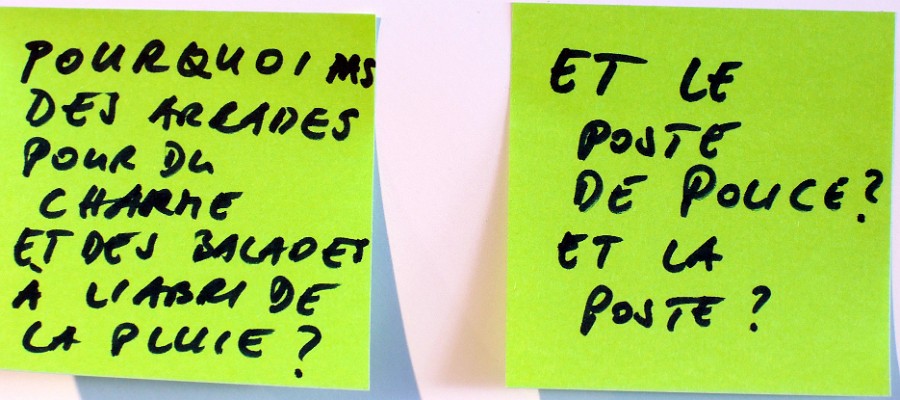 POURQUOI PAS
DES ARCADES
POUR DU
CHARME
ET DES BALADES
À L'ABRI DE
LA PLUIE ?
ET LE
POSTE
DE POLICE ?
ET LA
POSTE ?